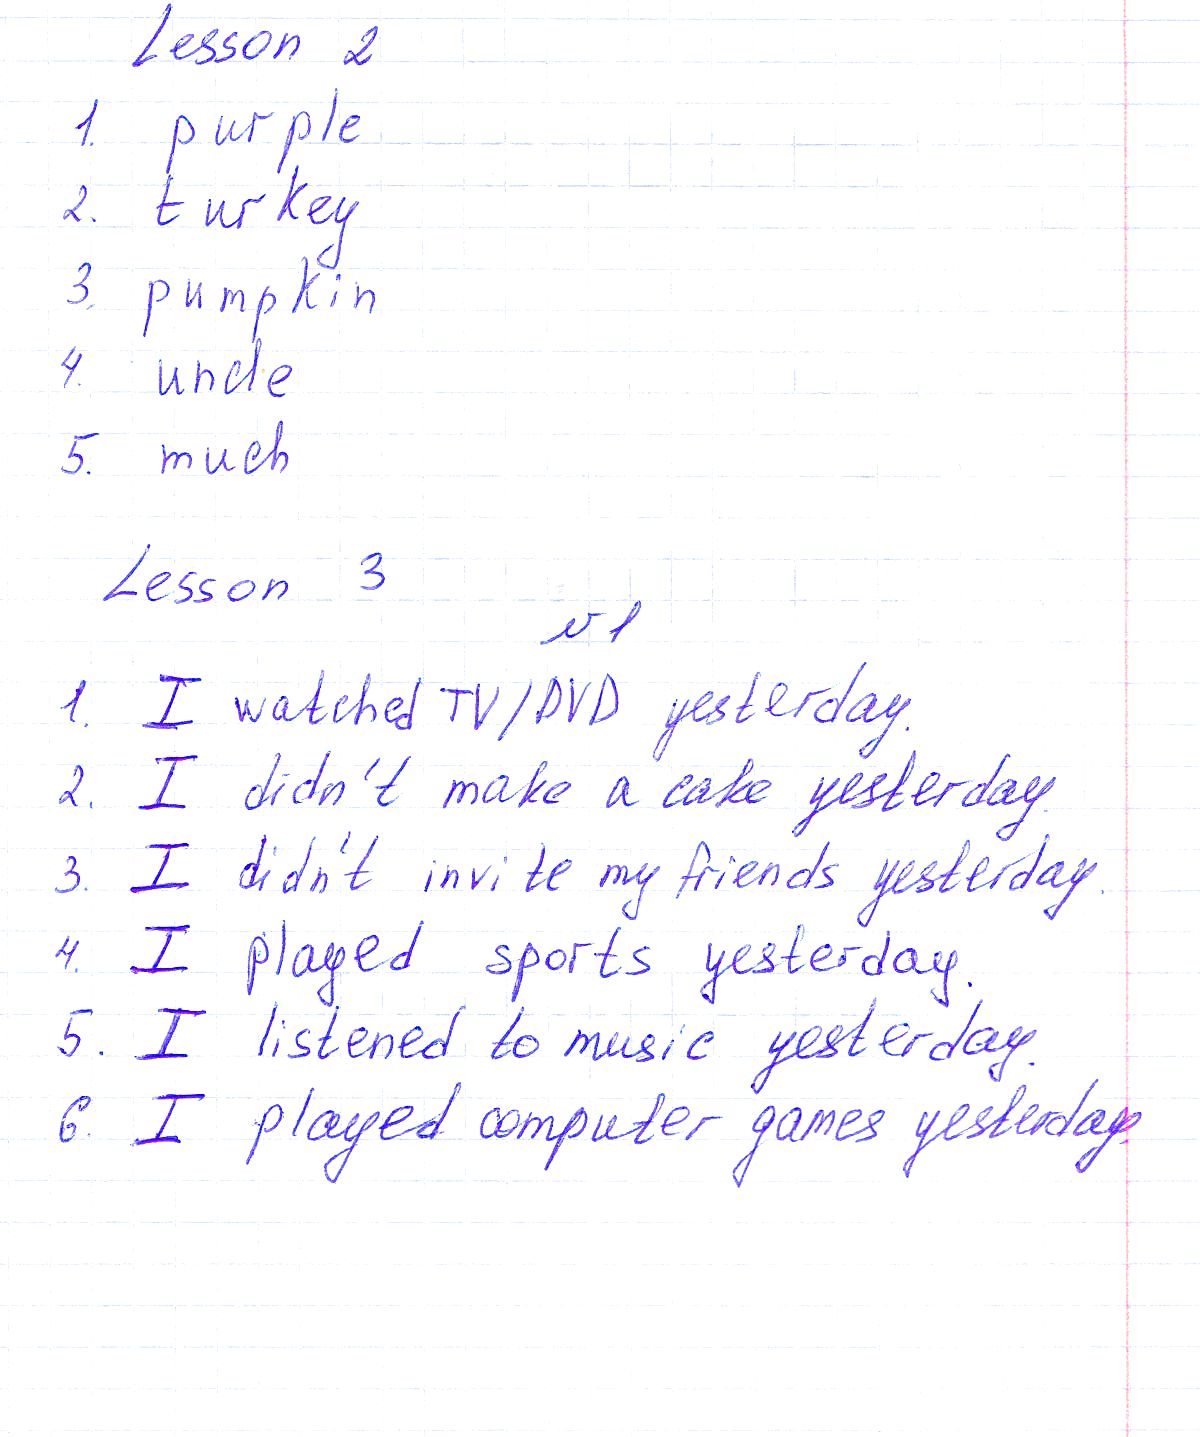 Lesson 2
1. purple
2. turkey
3. pumpkin
4. uncle
5. much
Lesson 3
№1
1. I watched TV/DVD yesterday.
2. I didn't make a cake yesterday.
3. I didn't invite my friends yesterday.
4. I played sports yesterday.
5. I listened to music yesterday.
6. I played computer games yesterday.